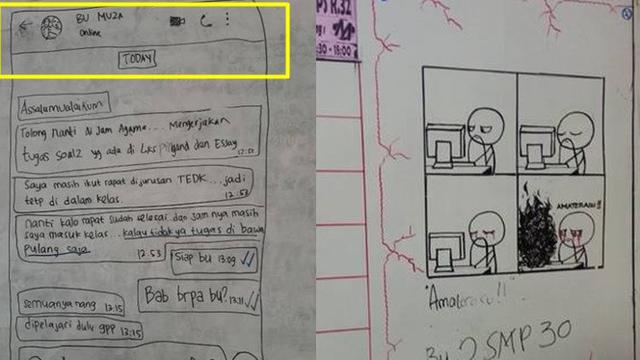 BU MUZA
Online
TODAY
Assalamualaikum
Tolong nanti di Jam Agama.... Mengerjakan
tugas soal2 yg ada di LKS Pilgand dan Essay
12:51
Saya masih ikut rapat di jurusan TEDK...jadi
tetp di dalam kelas.
12:53
nanti kalo rapat sudah selesai dan jam nya masih
saya masuk kelas...kalau tidak ya tugas di bawa
pulang saja
12:53
Siap bu 13:09
Bab brpa bu? 13:11
semuanya nang 13:15
dipelajari dulu gpp 13:15
R.32
30 - 18:00
AMATERASU!!
"Amaterasu!!"
2 SMP 30